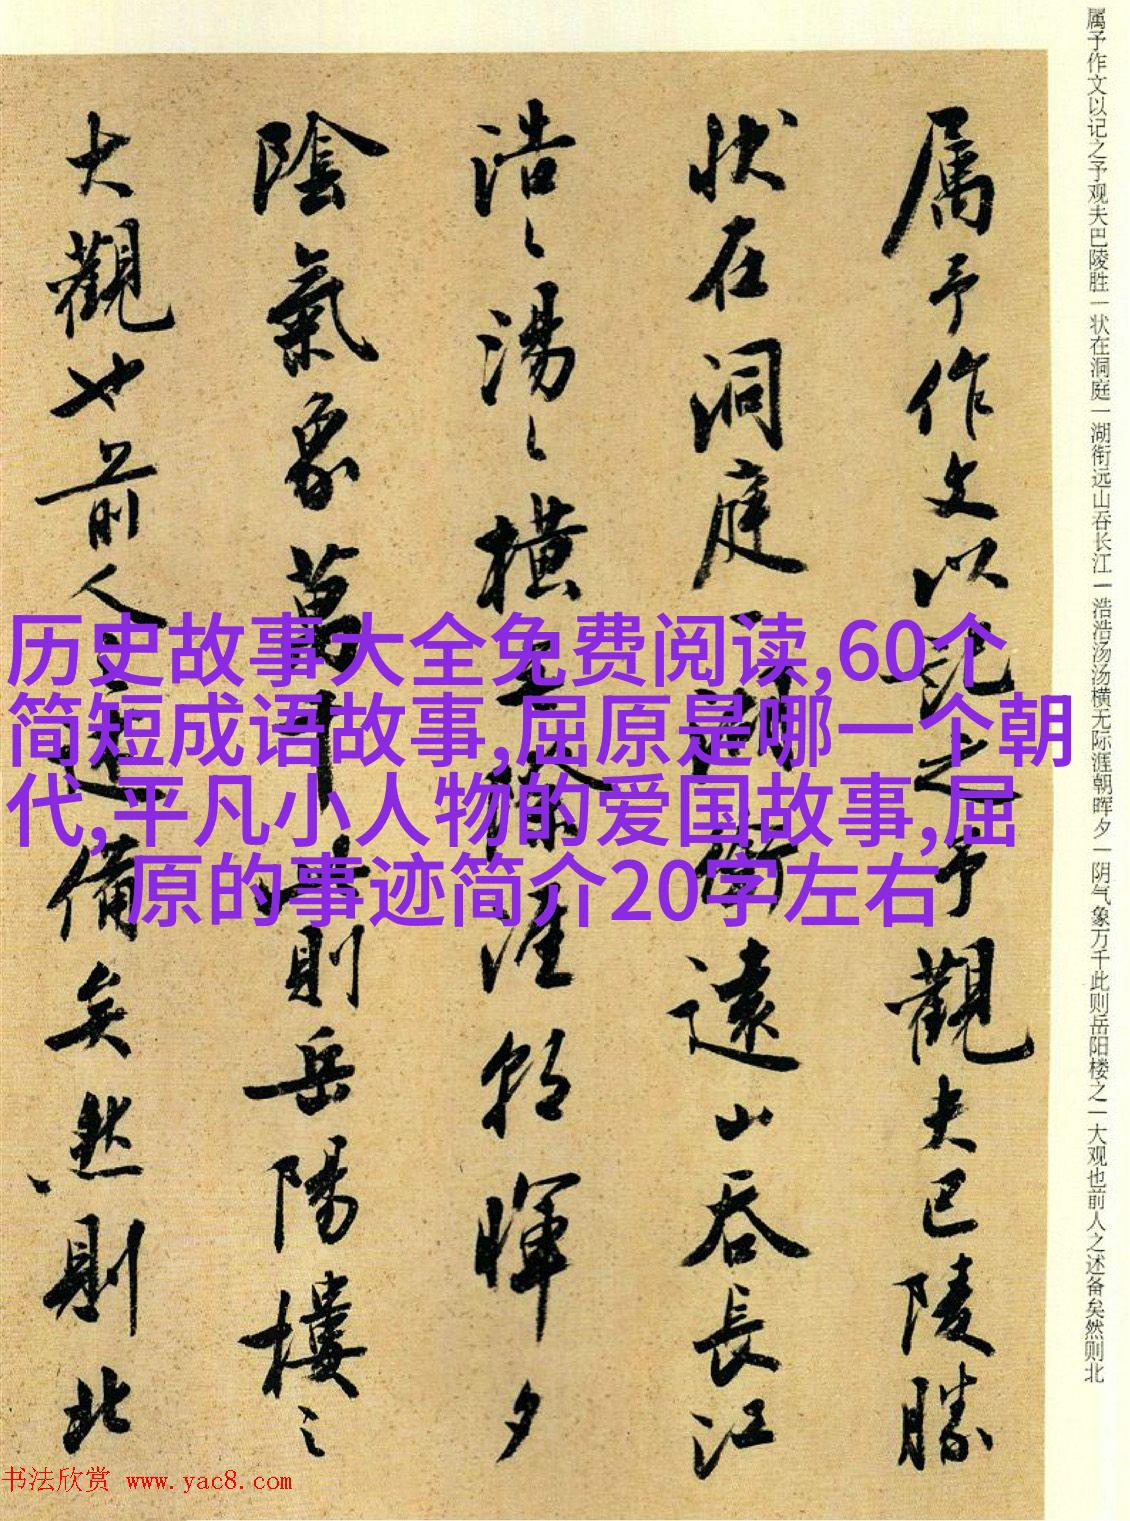 属予作文以记之予观夫巴陵胜一状在洞庭一湖衔远山吞长江一浩浩汤汤横无际涯朝晖夕一阴气象万千此则岳阳楼之一大观也前人之述备矣然则北
属予作文以記之予觀夫巴陵勝
状在洞庭一湖銜遠山吞長江
浩〻湯〻橫無際涯朝暉夕
陰氣象萬千此則岳陽樓之
大觀也前人之述備矣然則北
历史故事大全免费阅读,60个
简短成语故事,屈原是哪一个朝
代,平凡小人物的爱国故事,屈
原的事迹简介20字左右
书法欣赏 www.yac8.com